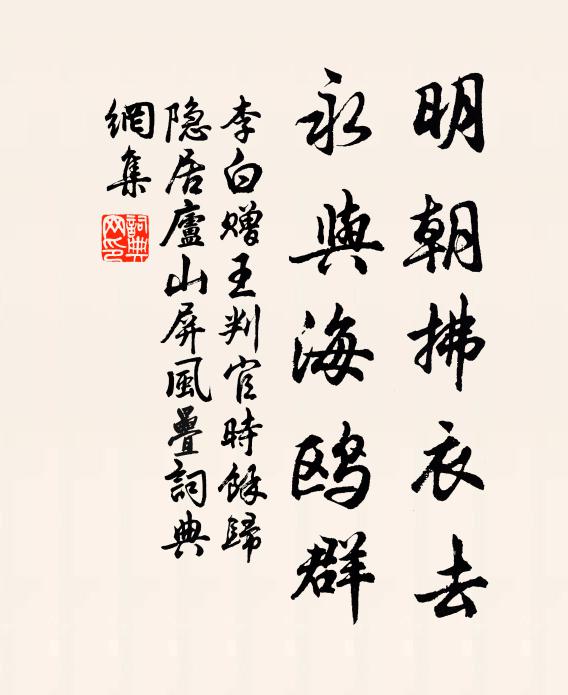 明朝拂衣去
永與海鸥群
李白赠王判官時餘歸
隐居廬山屏風疊詞典
網集
詞典網印